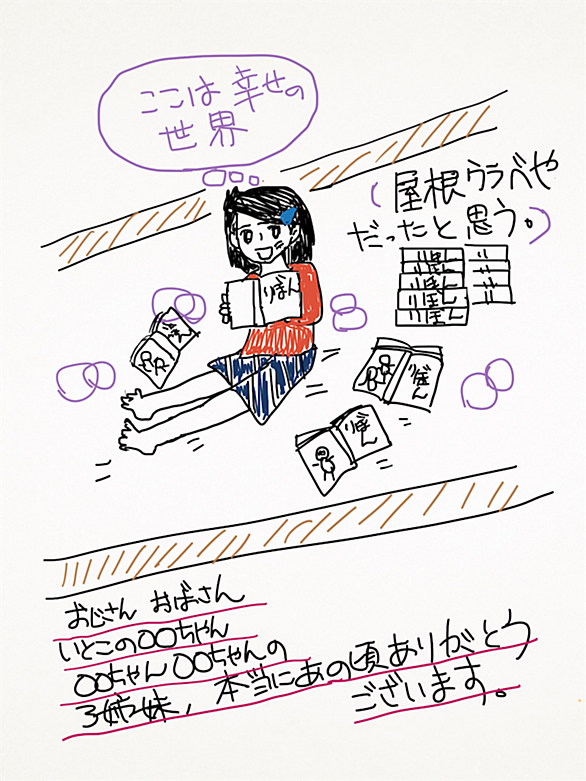 ここは幸せの
世界
(屋根ウラべや
だったと思う。)
りぼん
りぼん
りぼん
りぼん
りぼん
りぼん
りぼん
りぼん
おじさん おばさん
いとこの〇〇ちゃん
〇〇ちゃん〇〇ちゃんの
3姉妹, 本当にあの頃ありがとう
ございます。